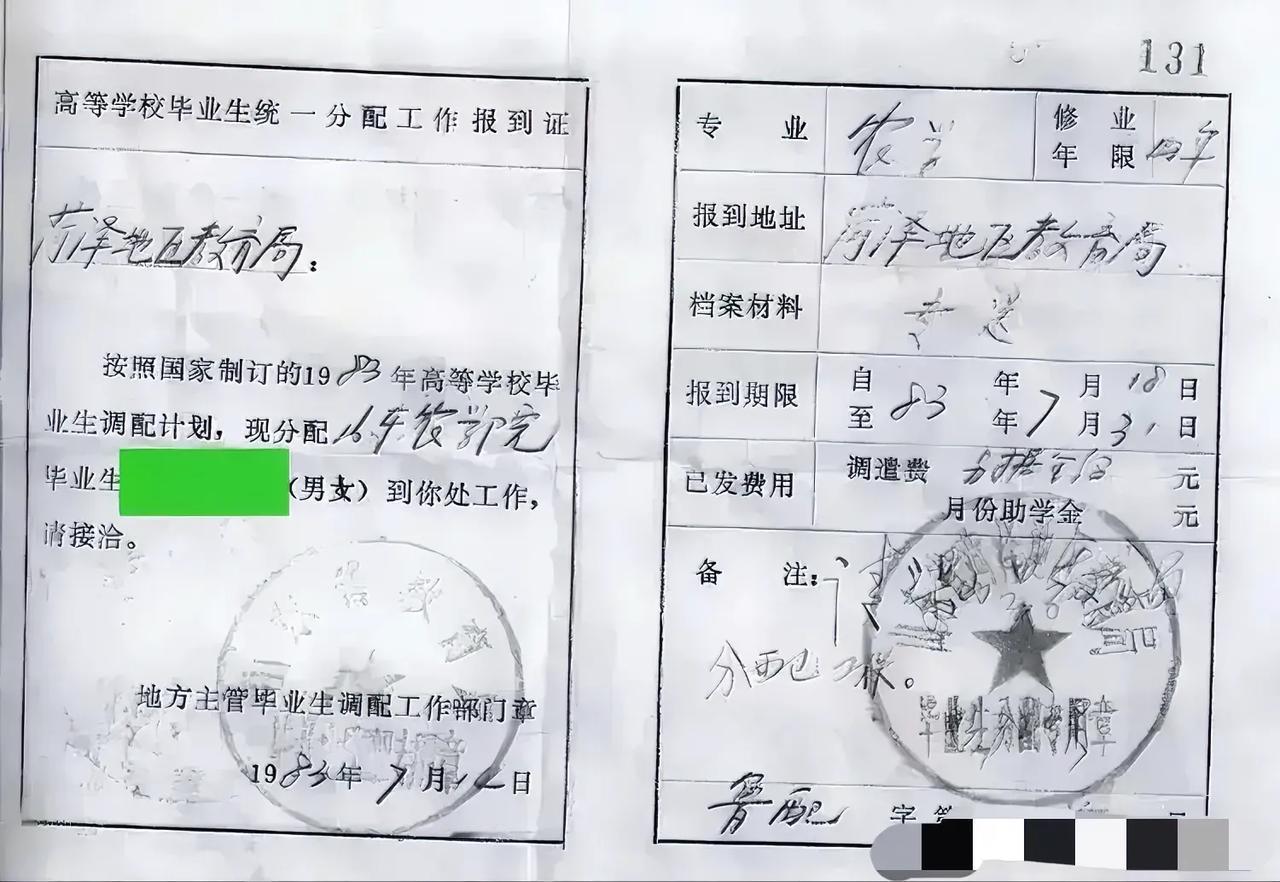 高等学校毕业生统一分配工作报到证
菏泽地区教育局：
按照国家制订的1983年高等学校毕
业生调配计划，现分配山东农学院
毕业生（男女）到你处工作，
请接洽。
地方主管毕业生调配工作部门章
1983年7月12日
131
专业 农学 修业年限 四年
报到地址 菏泽地区教育局
档案材料 专送
报到期限 自83年7月18日
至 年 月31日
已发费用 调遣费 元
月份助学金 元
备注：
分配工作。
毕业生分配专用章
鲁配 字第